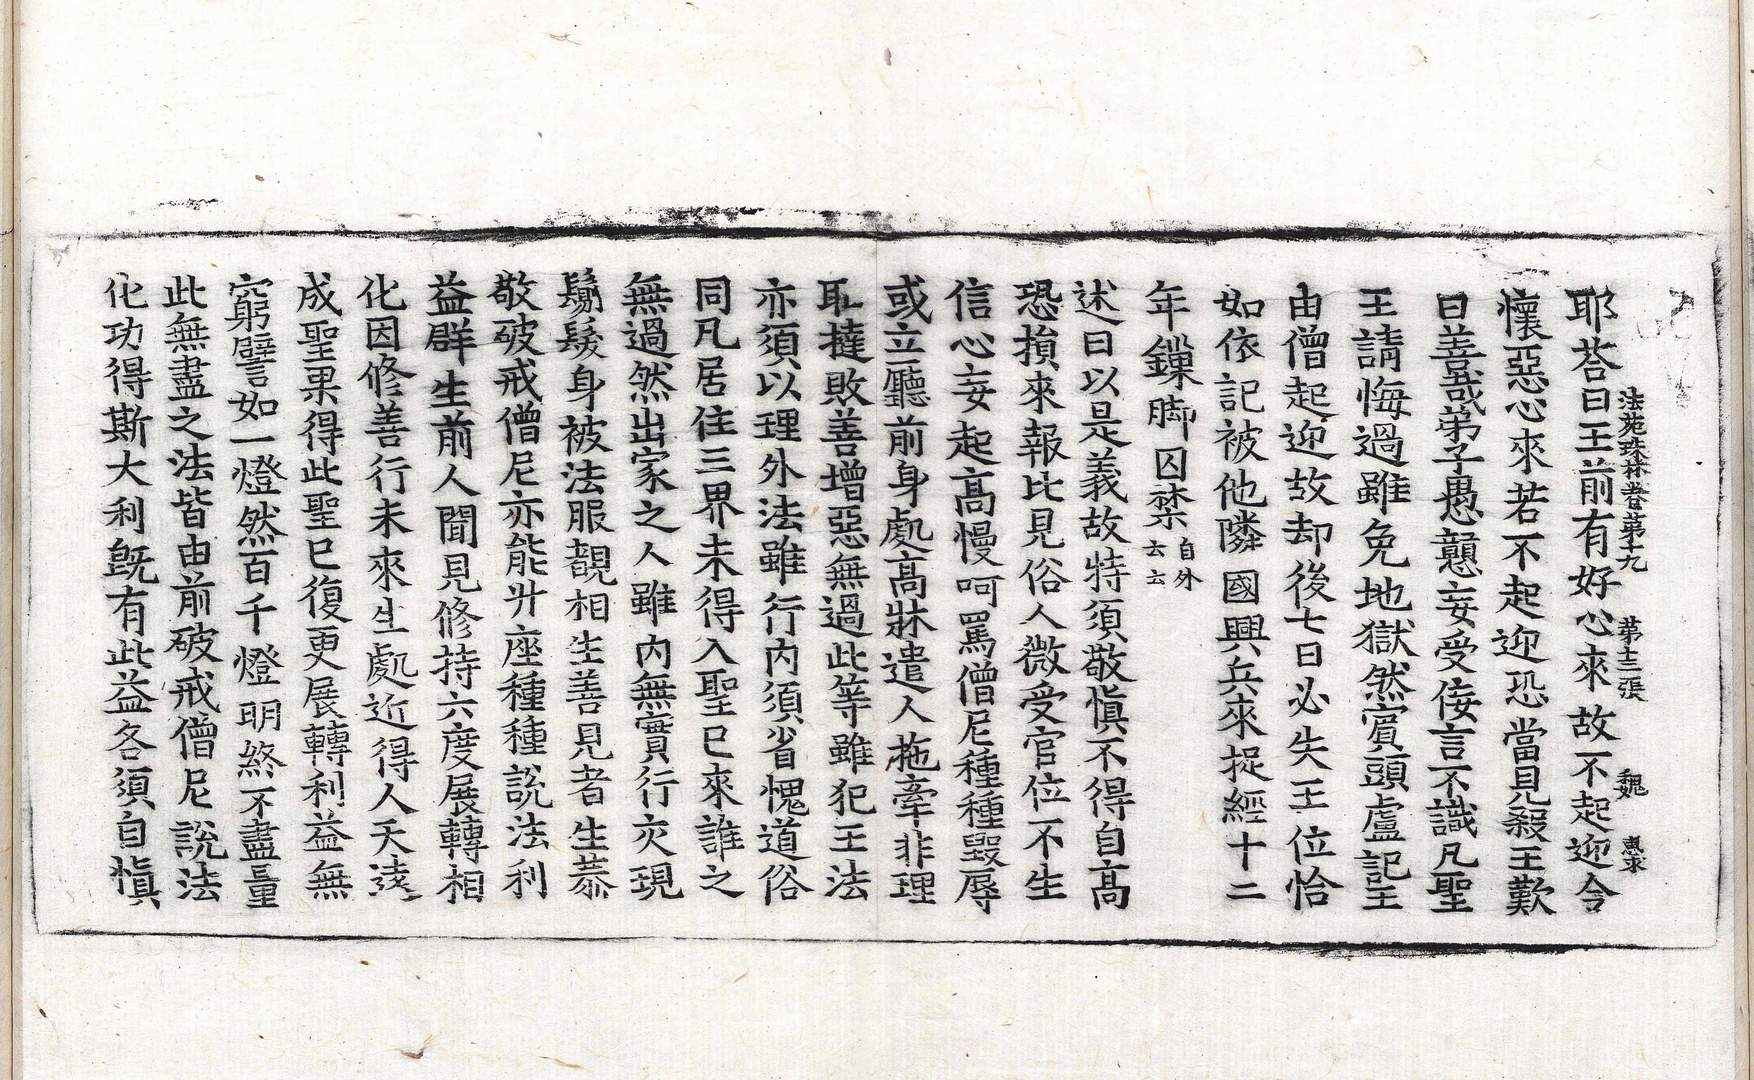 法苑珠林卷第十九 第十三張 魏 惠求
耶荅曰王前有好心來故不起迎今
懷惡心來若不起迎恐當見殺王歎
曰善哉弟子愚戇妄受侫言不識凡聖
王請悔過雖免地獄然賓頭盧記王
由僧起迎故却後七日必失王位恰
如依記被他隣國興兵來捉經十二
年鏁脚囚禁自外云云
述曰以是義故特須敬慎不得自高
恐損來報比見俗人微受官位不生
信心妄起高慢呵罵僧尼種種毀辱
或立廳前身處高牀遣人拖牽非理
耻撻敗善增惡無過此等雖犯王法
亦須以理外法雖行内須省愧道俗
同凡居住三界未得入聖已來誰之
無過然出家之人雖内無實行交現
鬀髮身被法服覩相生善見者生恭
敬破戒僧尼亦能升座種種說法利
益群生前人聞見修持六度展轉相
化因修善行未來生處近得人天遠
成聖果得此聖已復更展轉利益無
窮譬如一燈然百千燈明終不盡量
此無盡之法皆由前破戒僧尼說法
化功得斯大利既有此益各須自慎